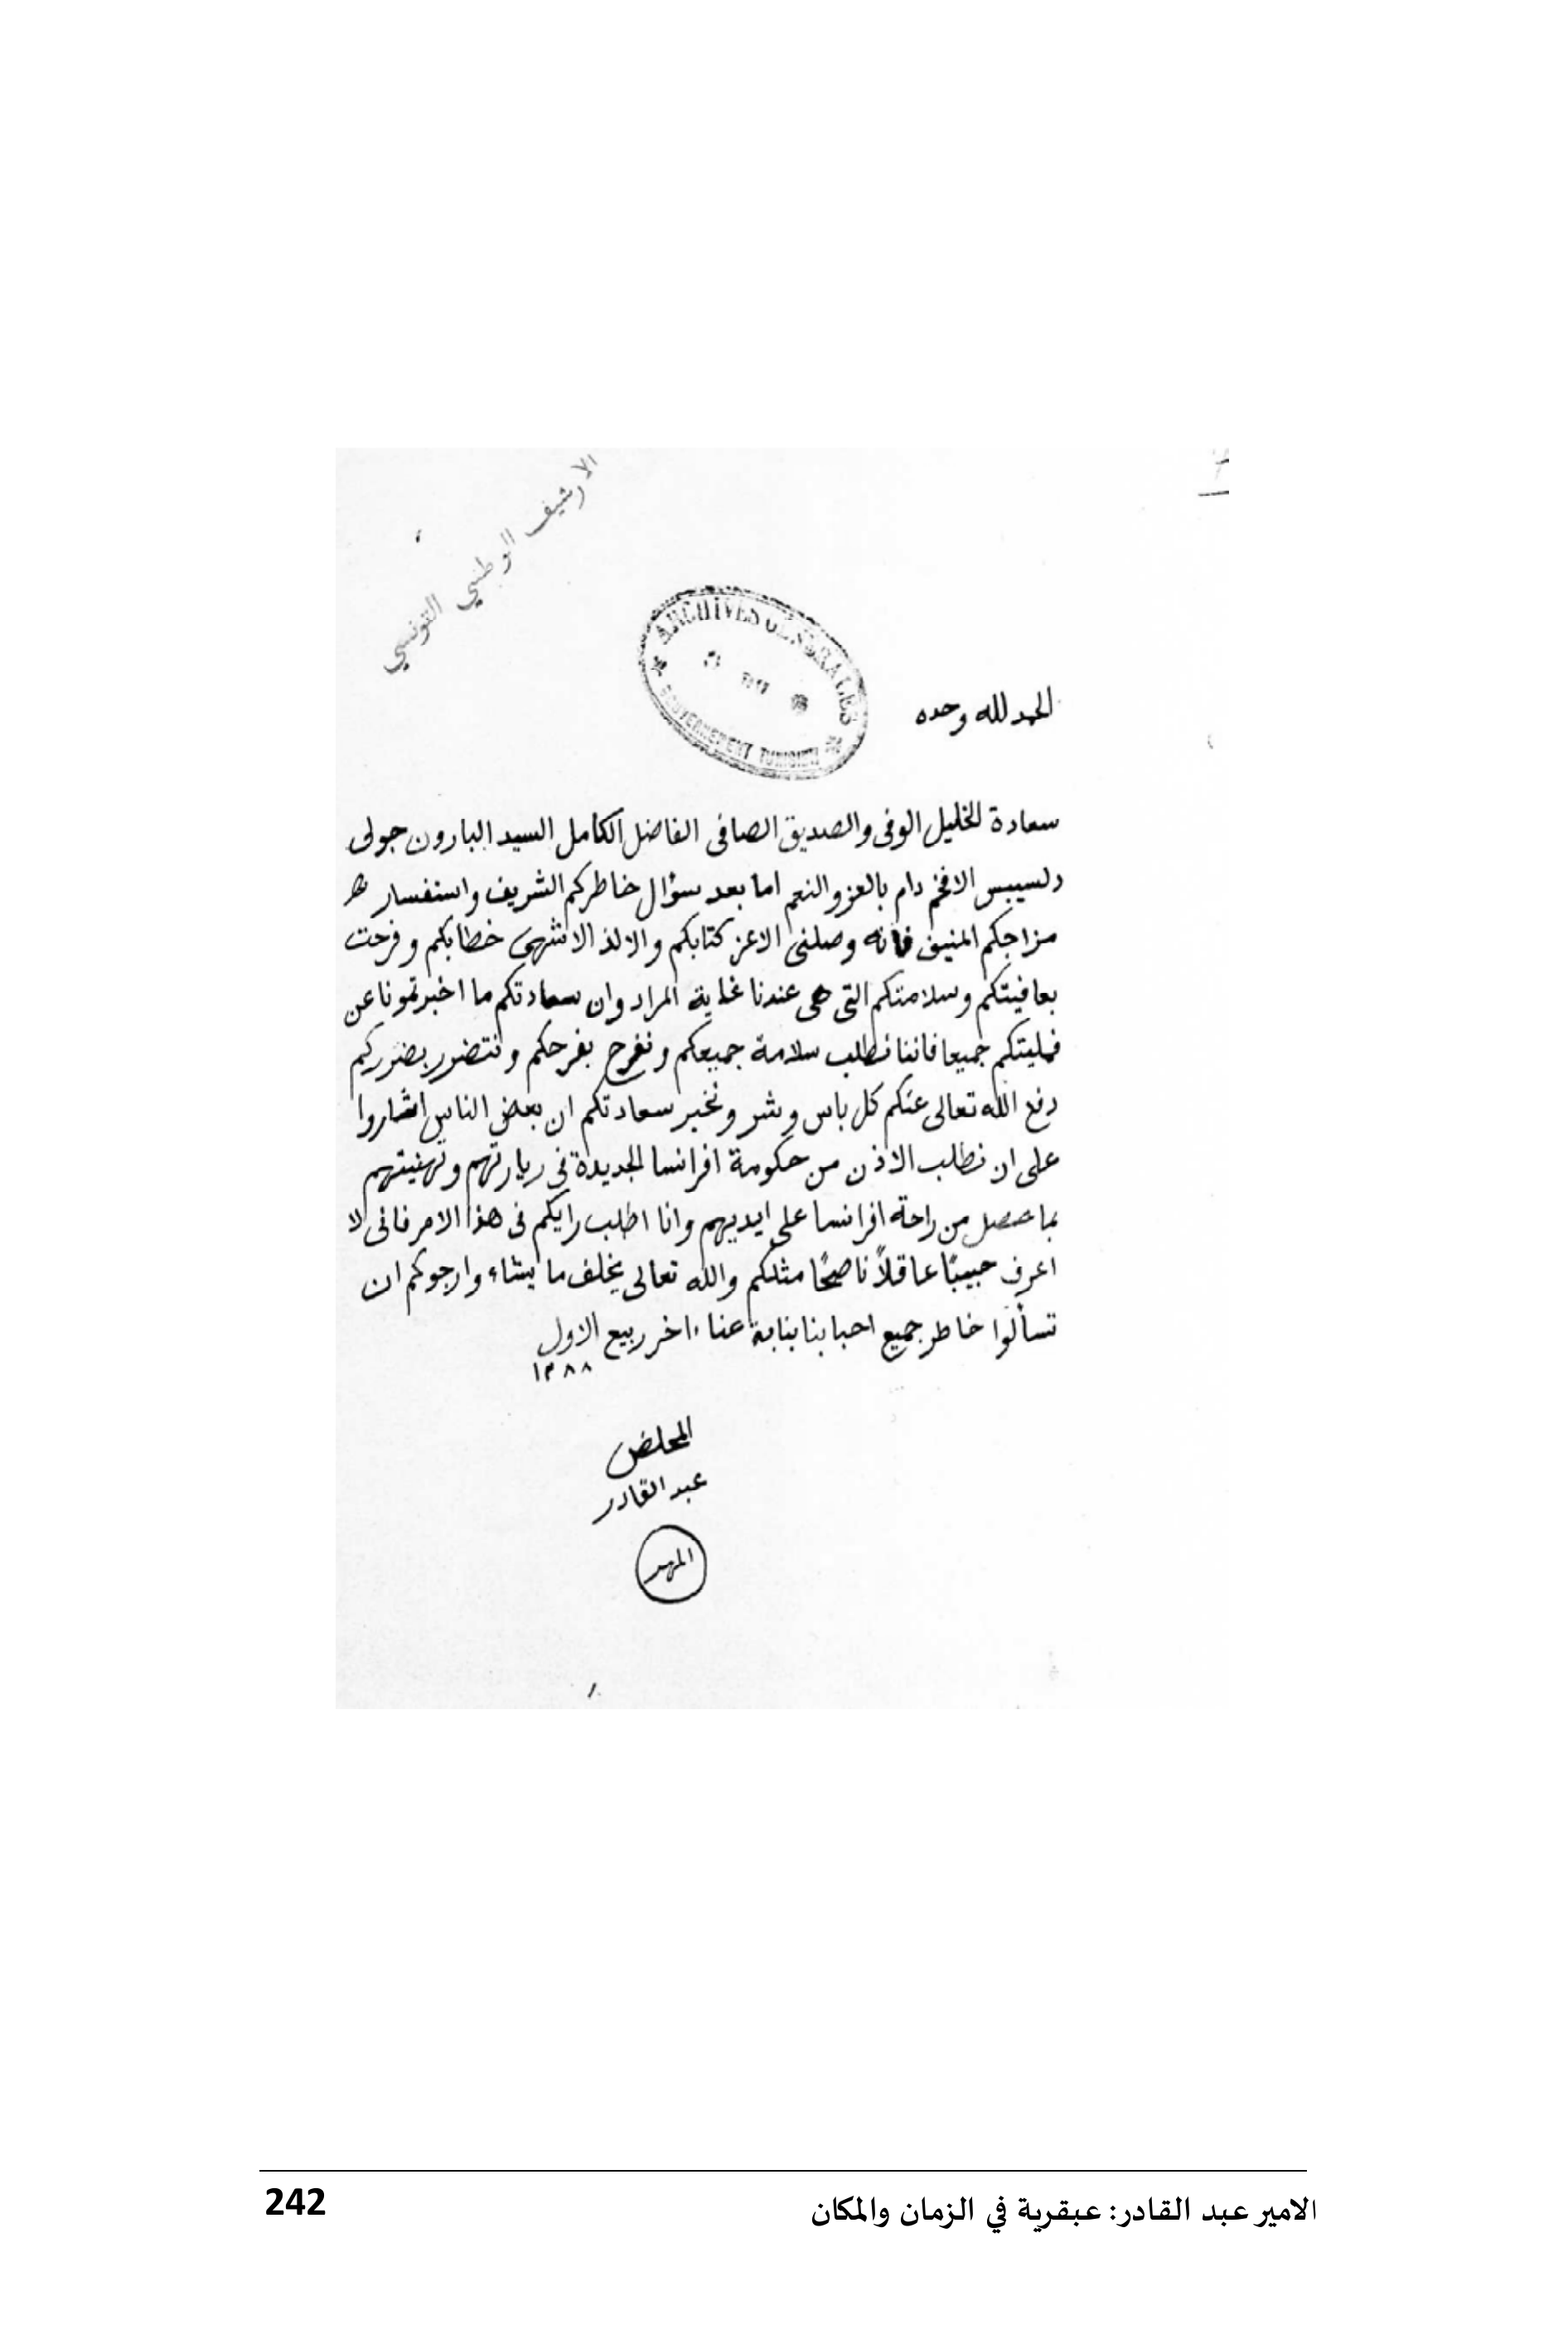 الارشيف الوطني التونسي
ARCHIVES GENERALES
GOUVERNEMENT TUNISIEN
الحمد لله وحده
سعادة الخليل الوفى والصديق الصافى الفاضل الكامل السيد البارون جولى
دلسيبس الافخم دام بالعز والنعم اما بعد سؤال خاطركم الشريف واستفسار
مزاجكم المنيف فانه وصلنى الاعز كتابكم والالذ الاشهى خطابكم وفرحت
بعافيتكم وسلامتكم التى هى عندنا غاية المراد وان سعادتكم ما اخبرتمونا عن
فمليتكم جميعا فاننا نطلب سلامة جميعكم ونفرح بفرحكم ونتضرر بضرركم
دفع الله تعالى عنكم كل باس وشر ونخبر سعادتكم ان بعض الناس اشاروا
على ان نطلب الاذن من حكومة افرانسا الجديدة في زيارتهم وتهنيتهم
بما حصل من راحة افرانسا على ايديهم وانا اطلب رايكم فى هذا الامر فانى لا
اعرف حبيبًا عاقلاً ناصحًا مثلكم والله تعالى يخلف ما يشاء وارجوكم ان
تسألوا خاطر جميع احبابنا بنابة عنا ءاخر ربيع الاول
١٢٨٨
المخلص
عبد القادر
المهر
الامير عبد القادر: عبقرية في الزمان والمكان
242